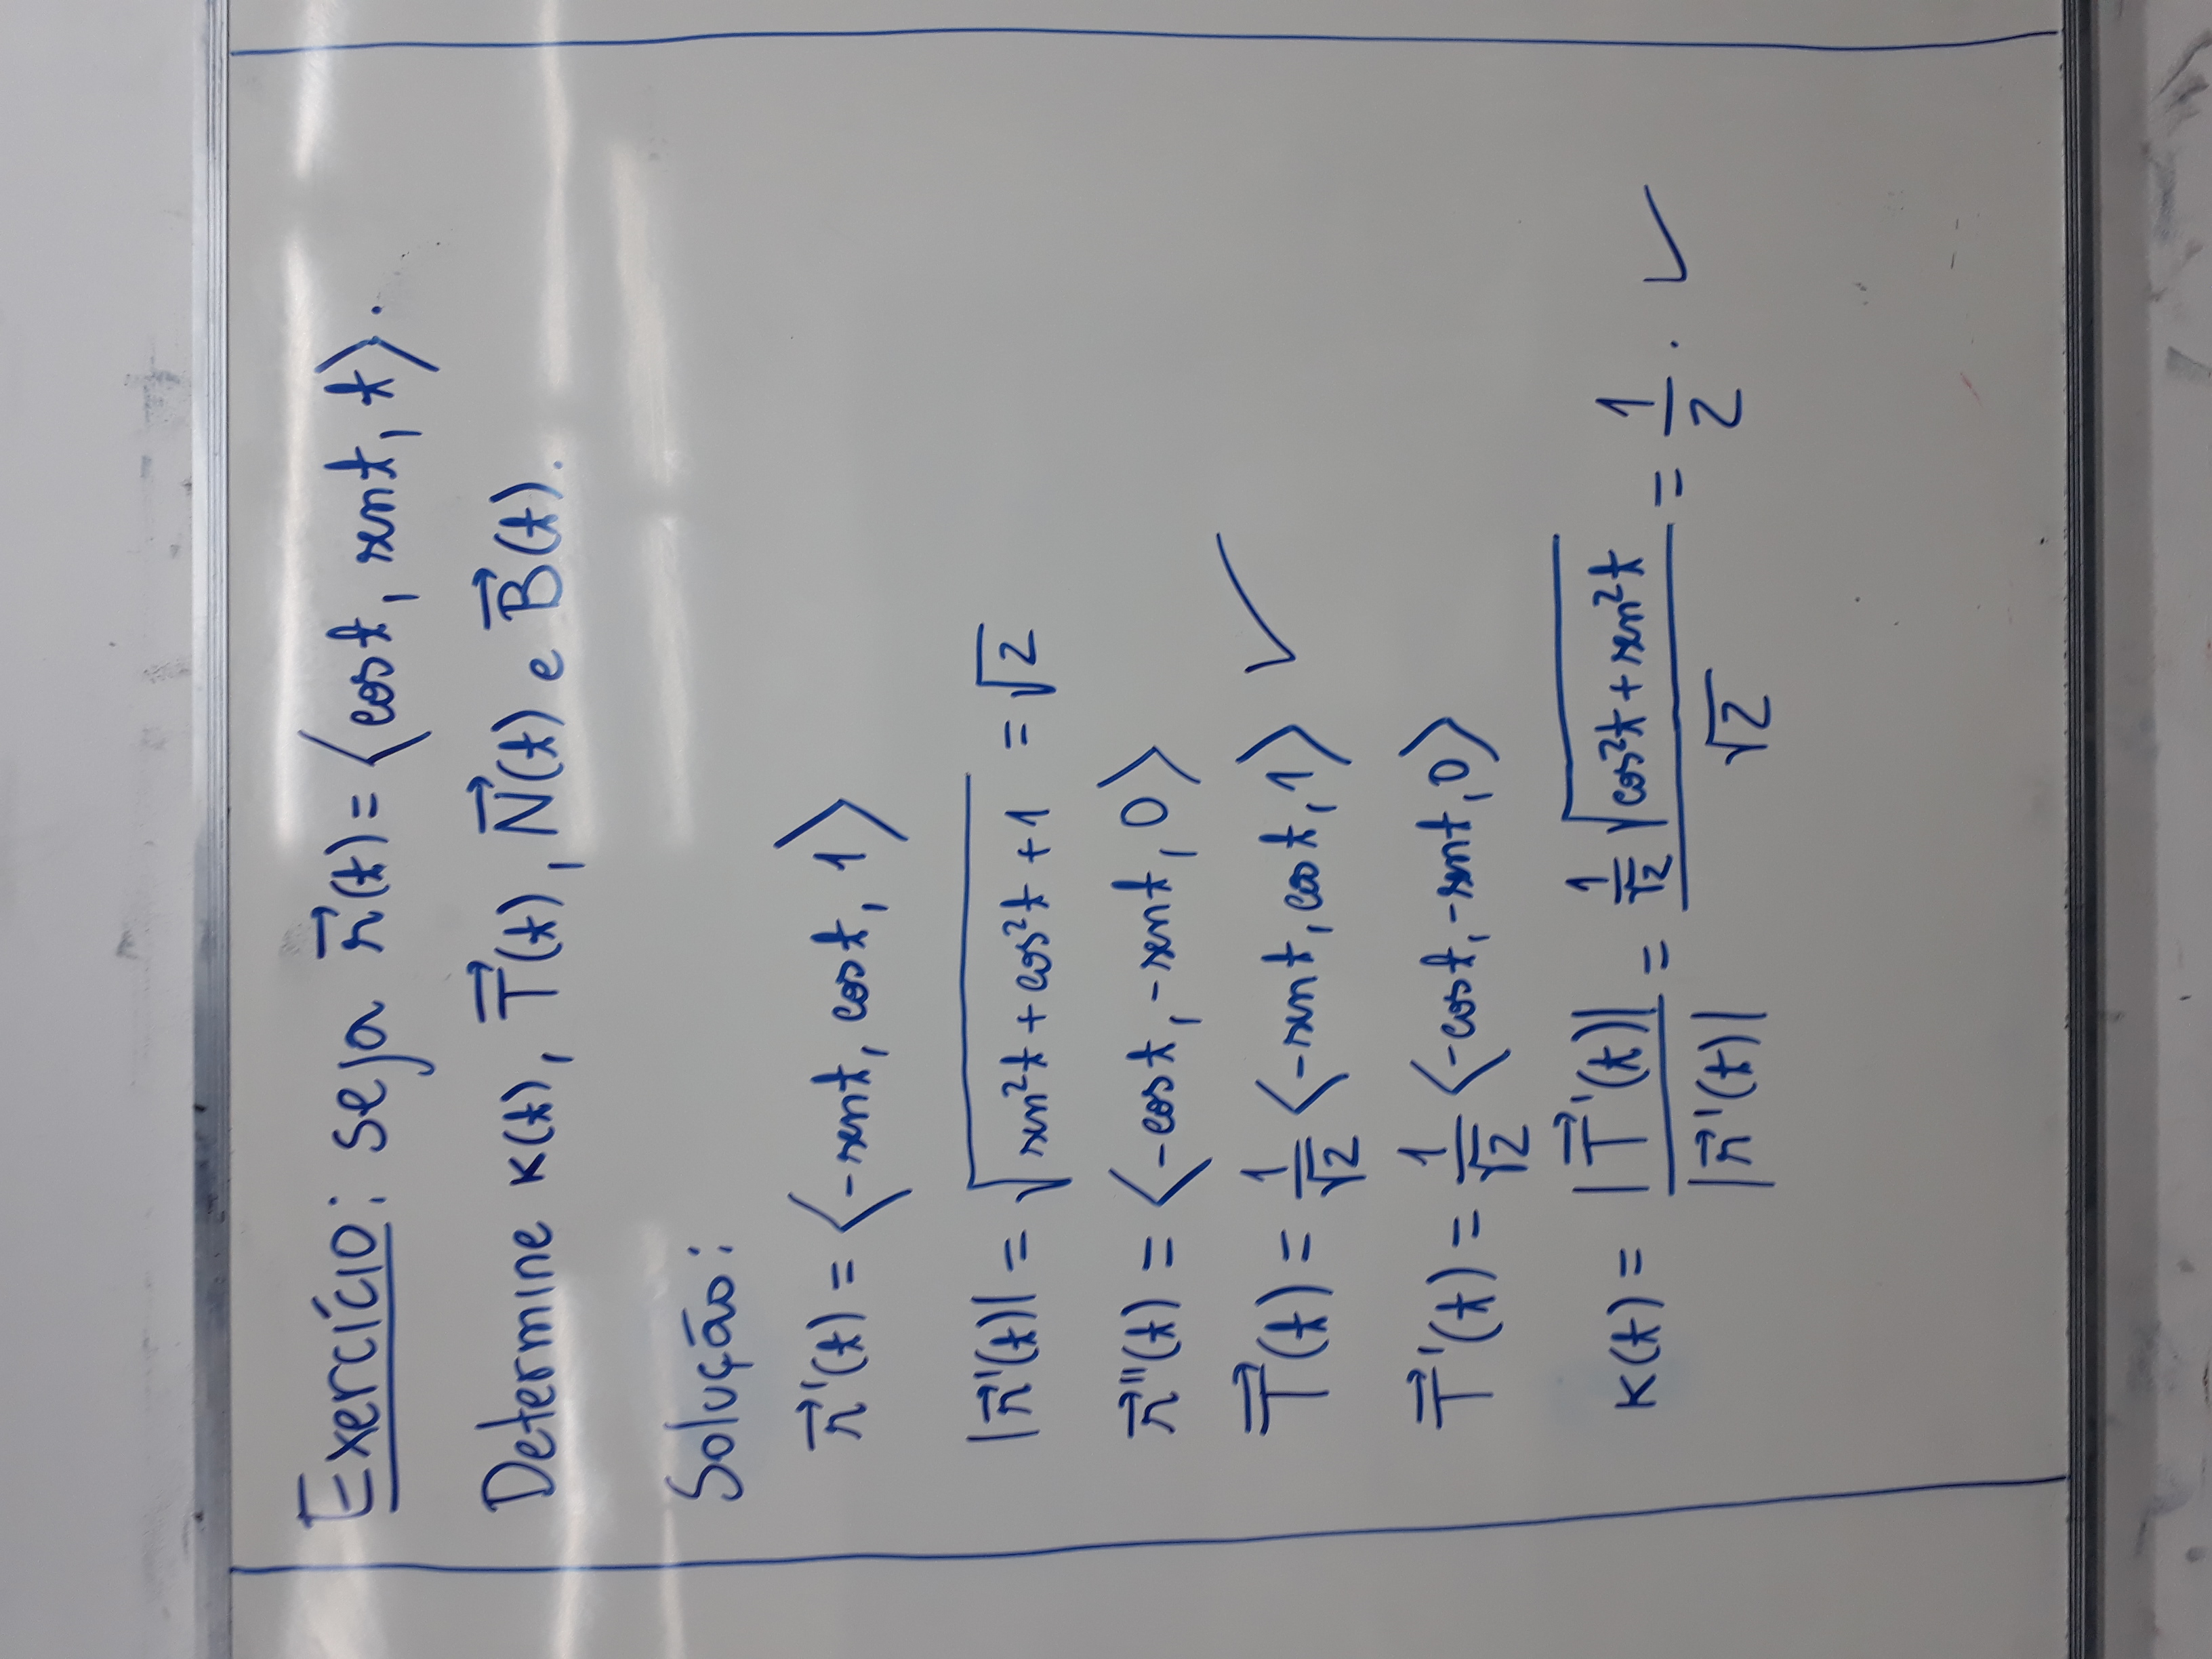 Exercício: seja r⃗(t) = ⟨cos t, sen t, t⟩.
Determine κ(t), T⃗(t), N⃗(t) e B⃗(t).
Solução:
r⃗'(t) = ⟨-sen t, cos t, 1⟩
|r⃗'(t)| = √(sen²t + cos²t + 1) = √2
r⃗''(t) = ⟨-cos t, -sen t, 0⟩
T⃗(t) = 1/√2 ⟨-sen t, cos t, 1⟩ ✓
T⃗'(t) = 1/√2 ⟨-cos t, -sen t, 0⟩
κ(t) = |T⃗'(t)| / |r⃗'(t)| = (1/√2 √(cos²t + sen²t)) / √2 = 1/2 . ✓